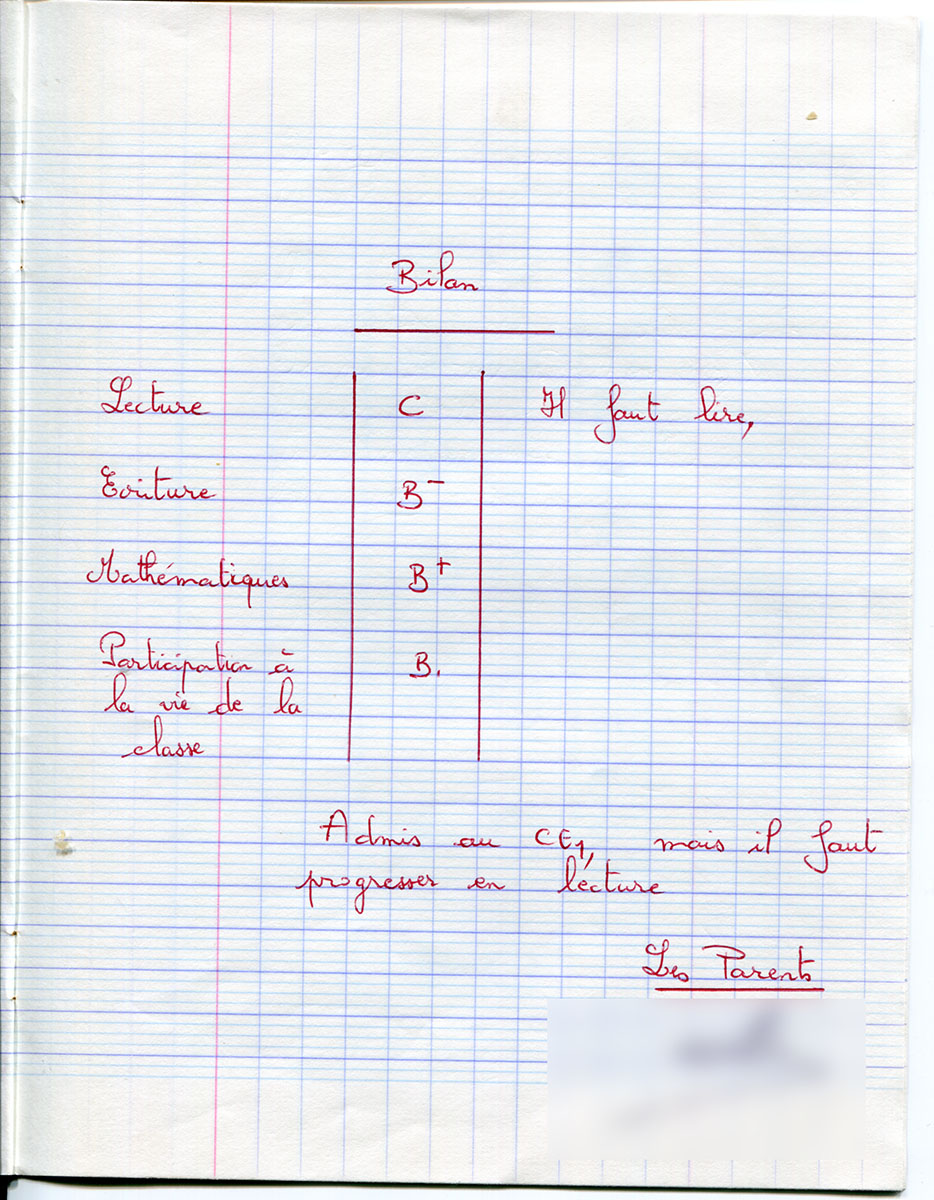 Bilan
Lecture C Il faut lire,
Ecriture B-
Mathématiques B+
Participation à B.
la vie de la
classe
Admis au CE1, mais il faut
progresser en lecture
Les Parents